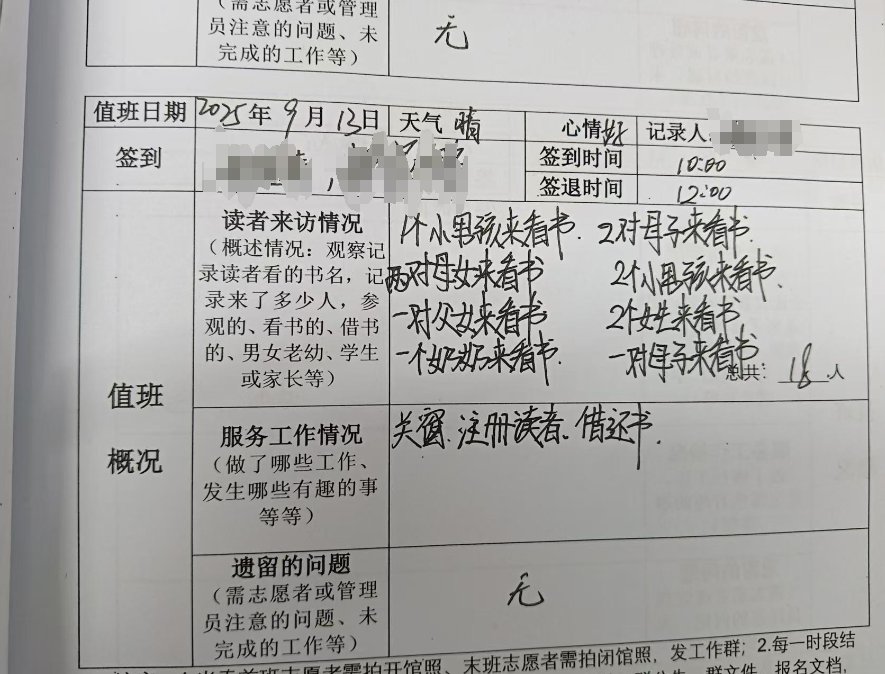 （需志愿者或管理
员注意的问题、未
完成的工作等）
无
值班日期 2025年9月13日 天气 晴 心情 好 记录人:
签到
签到时间 10:00
签退时间 12:00
值班
概况
读者来访情况
（概述情况：观察记
录读者看的书名，记
录来了多少人，参
观的、看书的、借书
的、男女老幼、学生
或家长等）
1个小男孩来看书. 2对母子来看书.
两对母女来看书 2个小男孩来看书.
一对父女来看书 2个女生来看书
一个 来看书. 一对母子来看书
总共: 18 人
服务工作情况
（做了哪些工作、
发生哪些有趣的事
等等）
关窗. 注册读者. 借还书.
遗留的问题
（需志愿者或管理
员注意的问题、未
完成的工作等）
无
班志愿者需拍开馆照、末班志愿者需拍闭馆照，发工作群；2.每一时段结
群文件，报名文档，